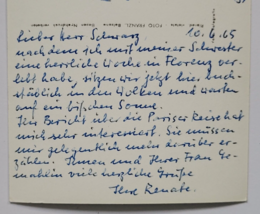 Lieber Herr Schwarz. 10.4.65
nachdem ich mit meiner Schwester
eine herrliche Woche in Florenz ver-
lebt habe, sitzen wir jetzt hier buch-
stäblich in den Wolken und warten
auf ein bißchen Sonne.
Ihr Bericht über die Pariser Reise hat
mich sehr interessiert. Sie müssen
mir gelegentlich mehr darüber er-
zählen. Ihnen und Ihrer Frau Ge-
mahlin viele herzliche Grüße
Ihre Renate.